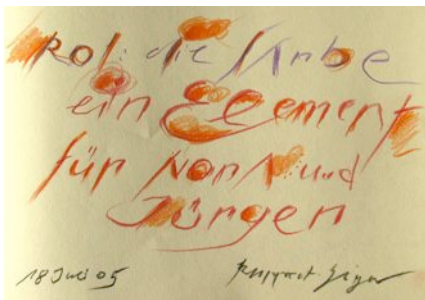 Rot: die Farbe
ein Element
für Nora und
Jürgen
18 Juli 05 Rupprecht Geiger